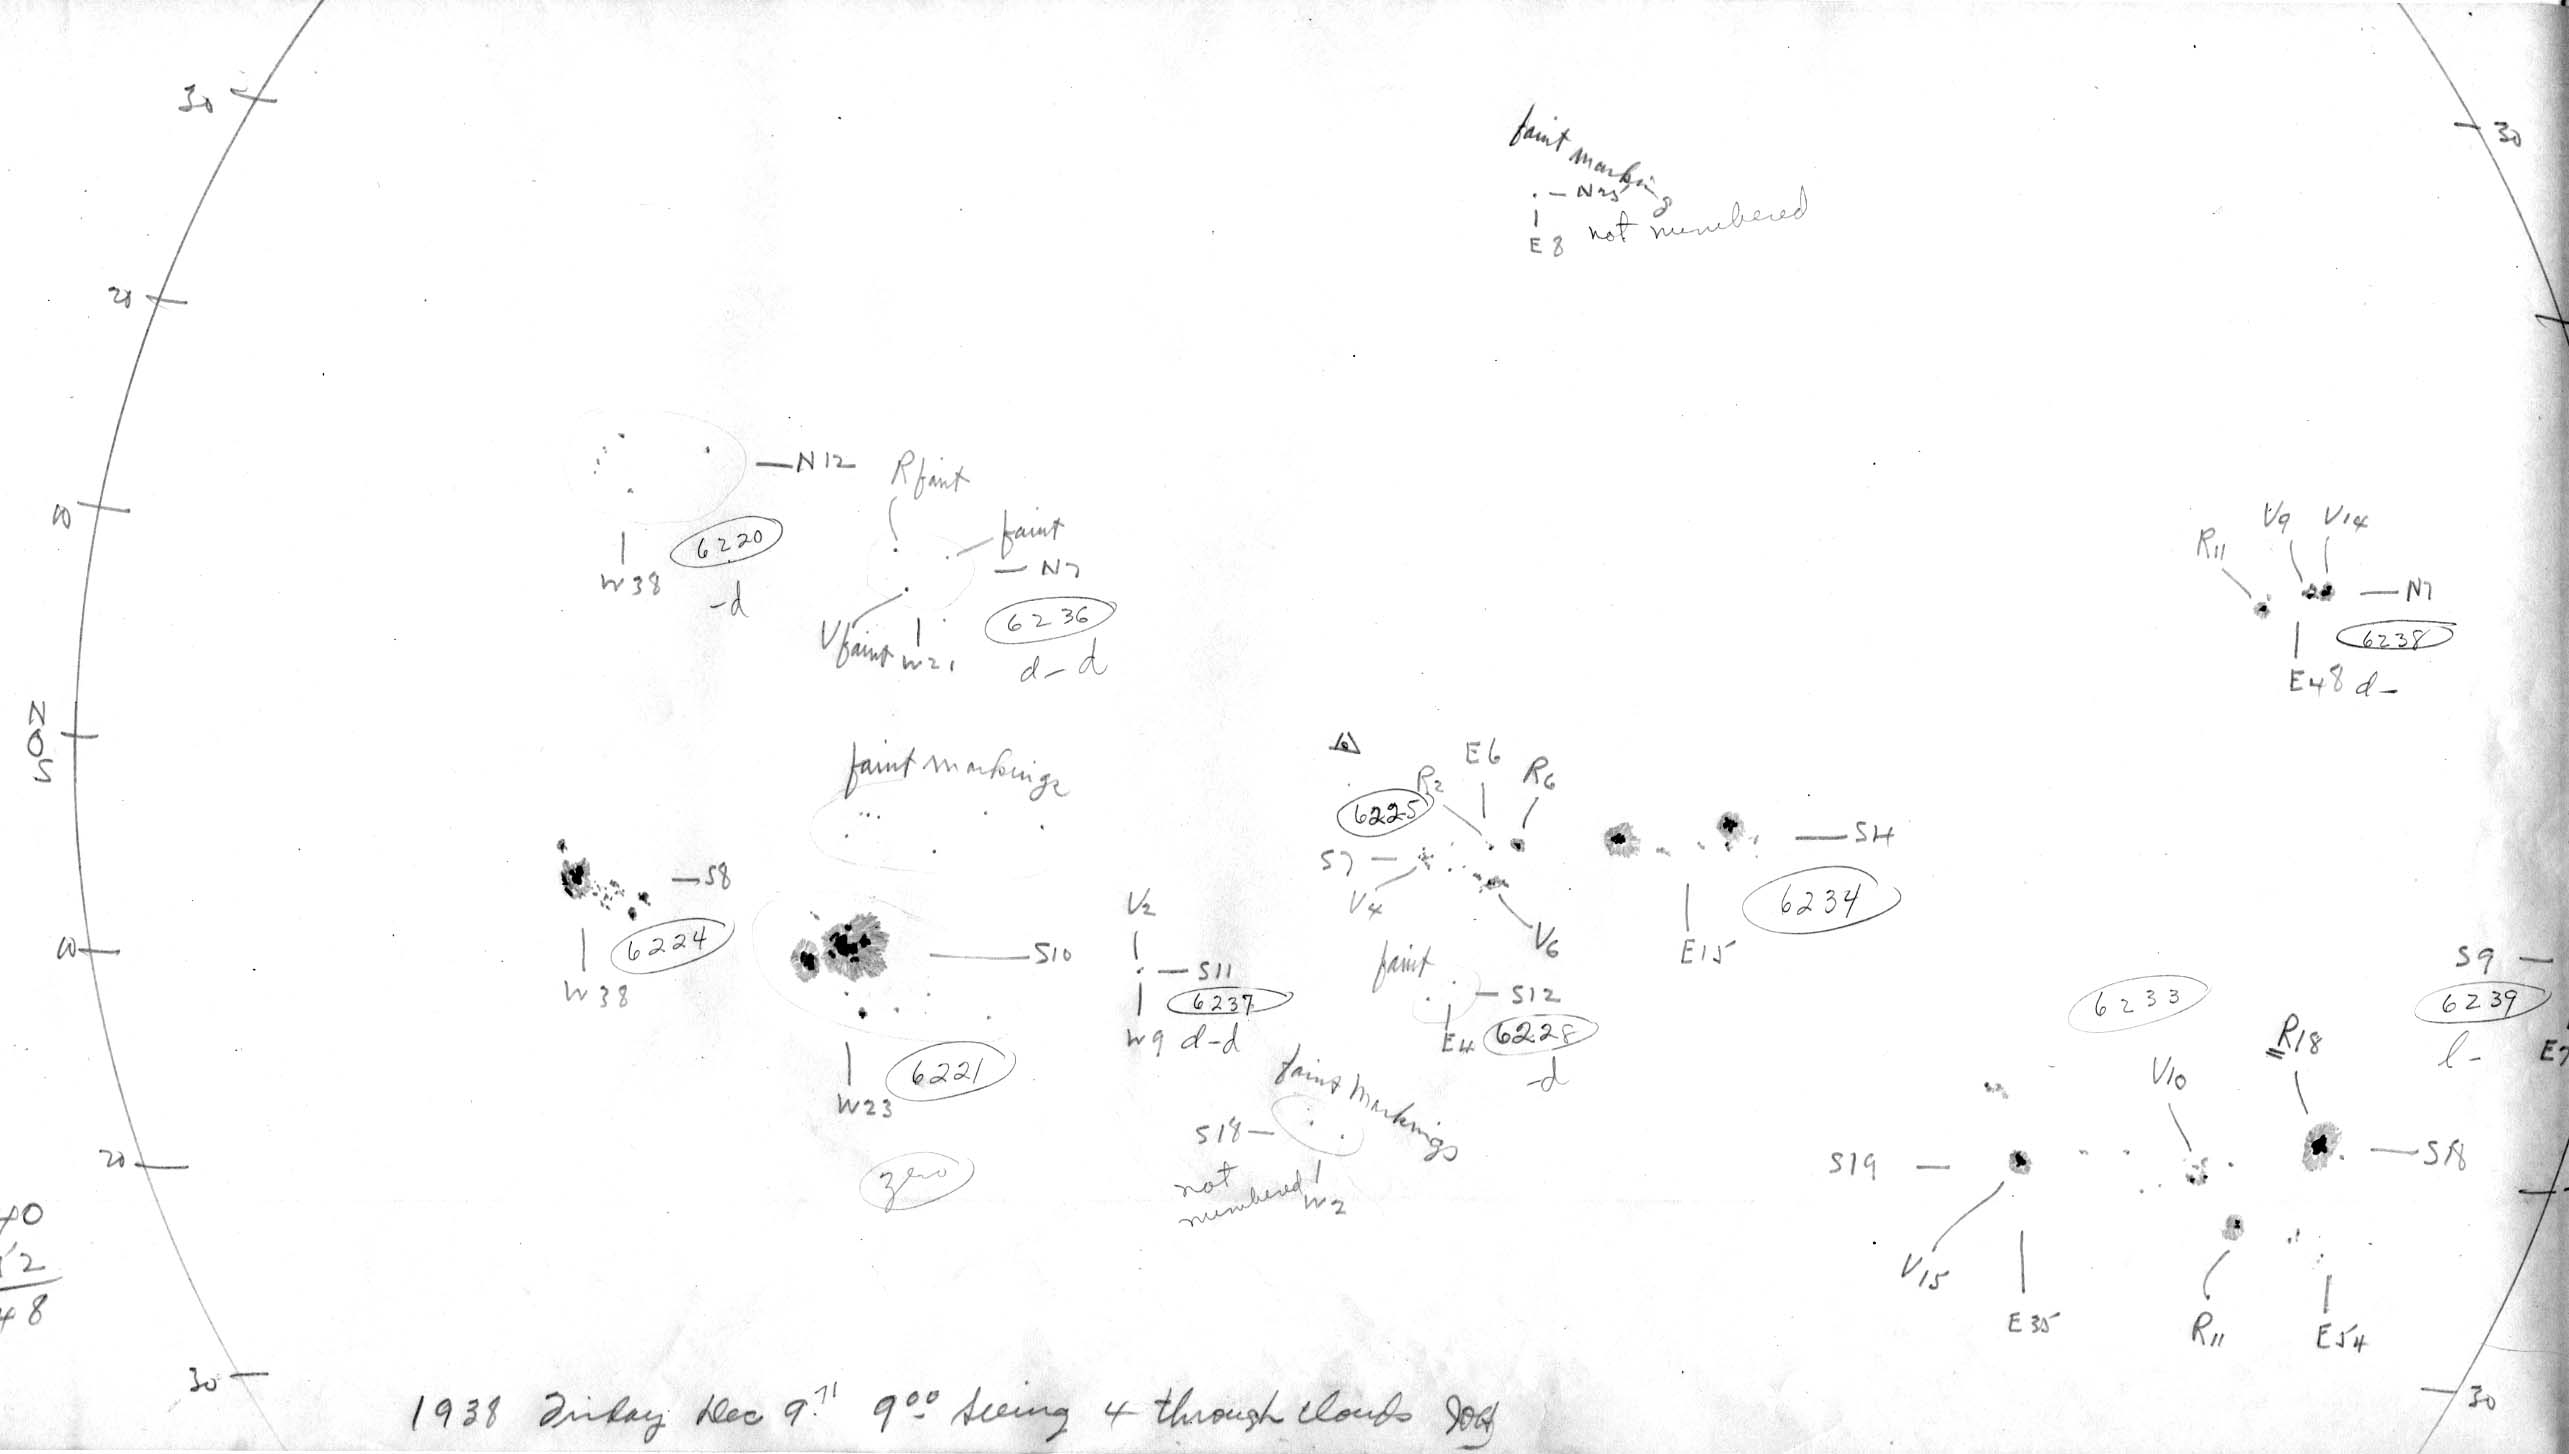 30
30
faint marking
N25
E8 not numbered
20
N12
R faint
faint
6220
N7
W38
-d
6236
V faint W21
d-d
10
V9 V14
R11
N7
6238
E48 d-
N
O
S
faint markings
E6
R2
R6
6225
S7
V4
V6
S4
6234
E15
S8
6224
W38
10
S10
6221
W23
zero
V2
S11
6237
W9 d-d
faint
S12
E4 6228
-d
faint markings
S18
not numbered W2
S9
6239
l-
6233
R18
V10
S19
S18
V15
E35
R11
E54
20
48
30
30
1938 Friday Dec 9th 900 seeing 4 through clouds